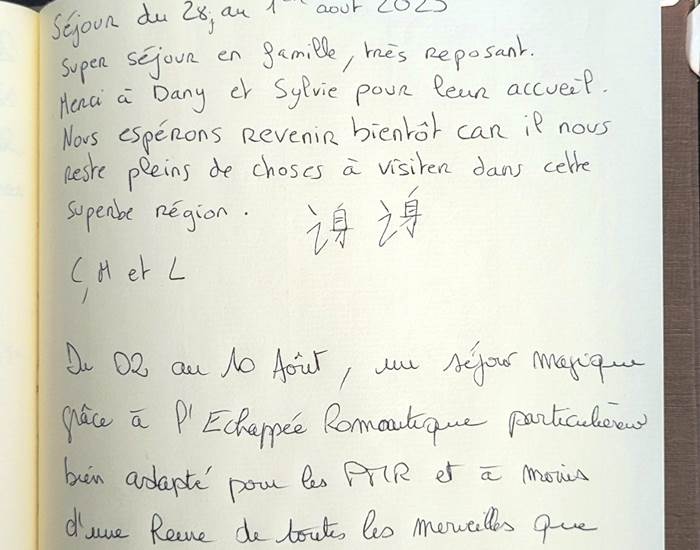 Séjour du 28, au 1er août
Super séjour en famille, très reposant.
Merci à Dany et Sylvie pour leur accueil.
Nous espérons revenir bientôt car il nous
reste pleins de choses à visiter dans cette
superbe région. 讠身 讠身
C, M et L
Du 02 au 10 Août, un séjour magique
grâce à l'Echappée Romantique
bien adapté pour les PMR et à moins
d'une heure de toutes les merveilles que